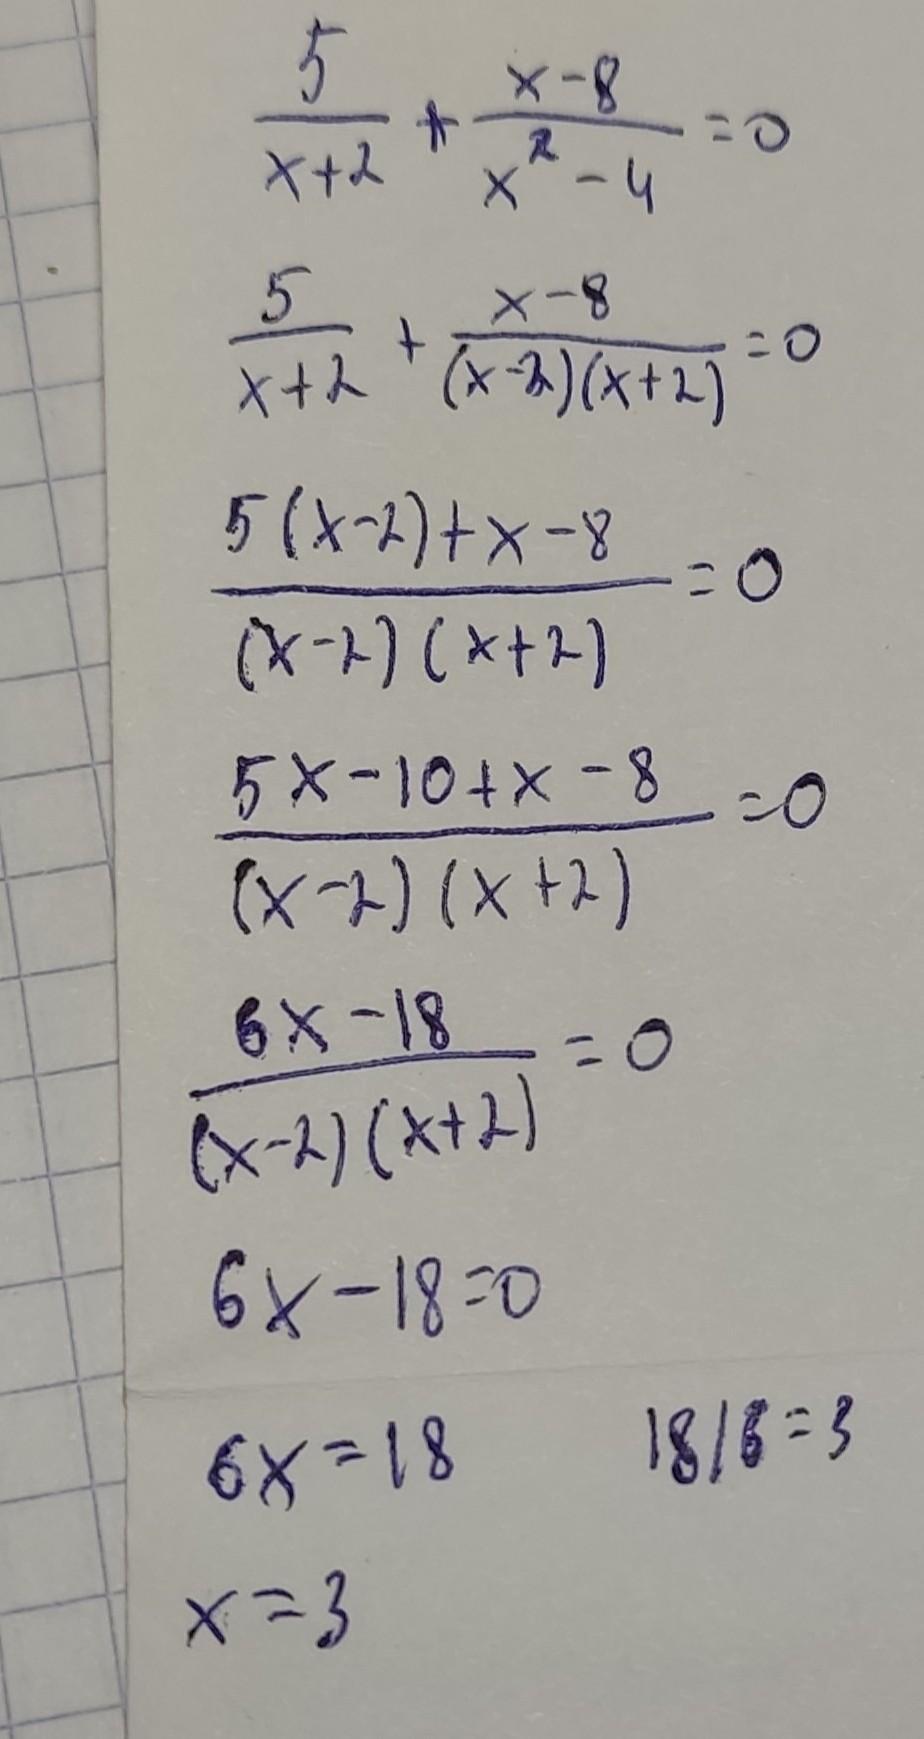 5/(x+2) + (x-8)/(x²-4) =0
5/(x+2) + (x-8)/((x-2)(x+2)) =0
(5(x-2)+x-8)/((x-2)(x+2)) =0
(5x-10+x-8)/((x-2)(x+2)) =0
(6x-18)/((x-2)(x+2)) =0
6x-18=0
6x=18 18/6=3
x=3